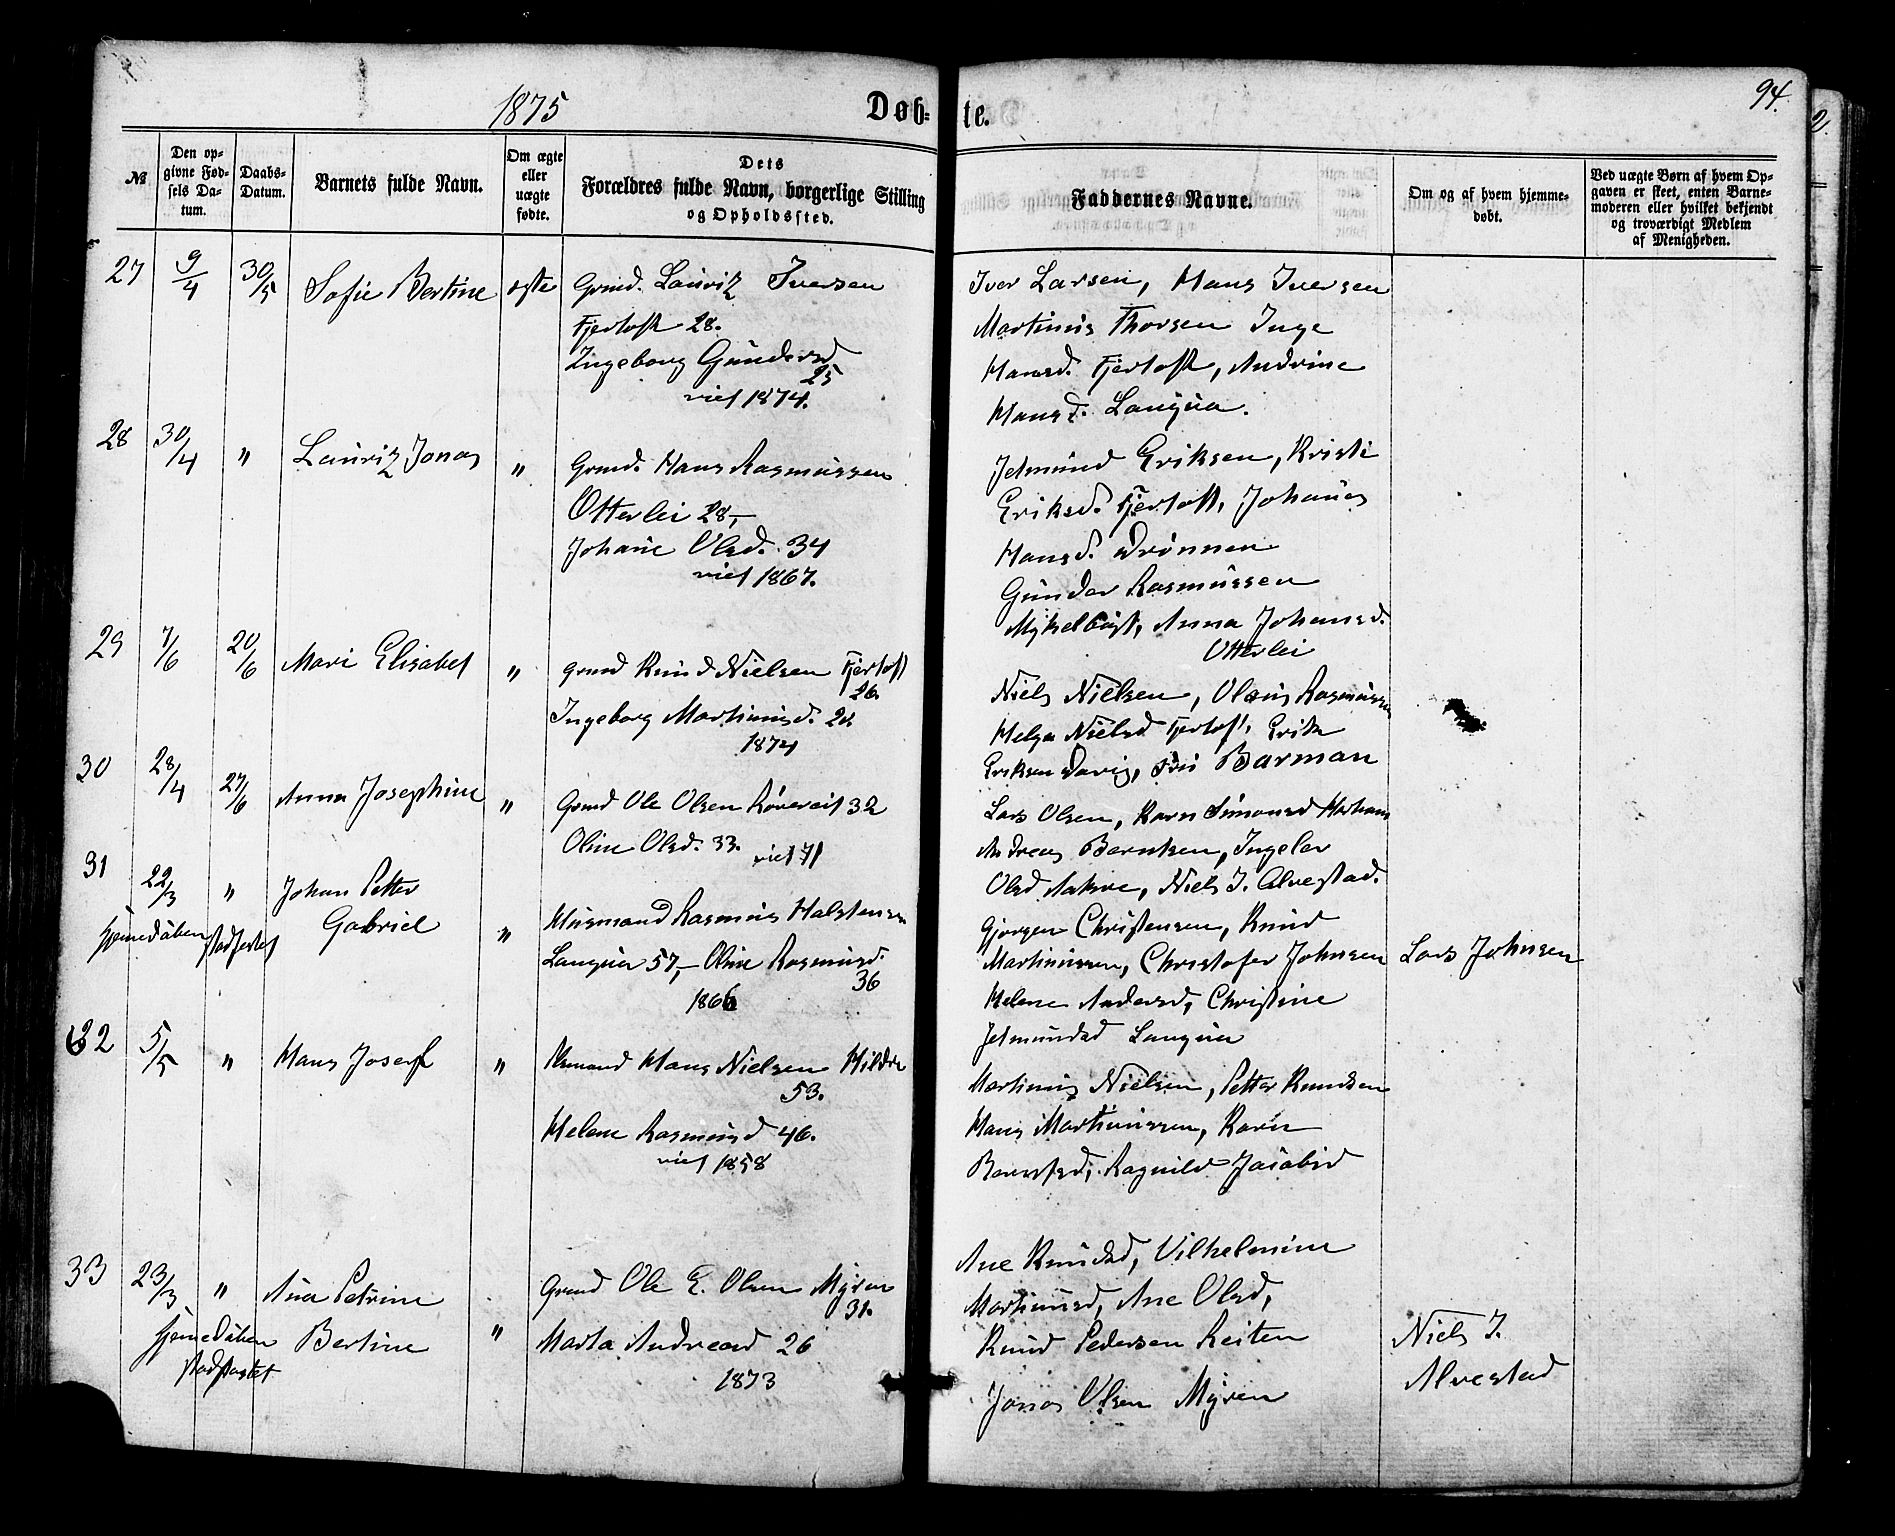 1875
Døb=
te.
94.
2.
№
Den op-
givne Fød-
sels Da-
tum.
Daabs-
Datum.
Barnets fulde Navn.
Om ægte
eller
uægte
fødte.
Dets
Forældres fulde Navn, borgerlige Stilling
og Opholdssted.
Faddernes Navne.
Om og af hvem hjemme-
døbt.
Ved uægte Børn af hvem Op-
gaven er skeet, enten Barne-
moderen eller hvilket bekjendt
og troværdigt Medlem
af Menigheden.
27 9/4 30/5 Sofie Bertine ægte Grmd. Lauritz Iversen
Fjertoft 28.
Ingeborg Gundersd
25
viet 1874.
Iver Larsen, Hans Iversen
Martinus Thorsen Inge
Hansd. Fjertoft, Andrine
Hansd. Longva.
28 30/4 " Lauritz Jonas " Grmd. Hans Rasmussen
Otterlei 28,-
Johane Olsd. 34
viet 1867.
Jetmund Eriksen, Kristi
Eriksd. Fjertoft, Johanes
Hansd. Drønnen
Gunder Rasmussen
Myklebust, Anna Johansd.
Otterlei
29 7/6 20/6 Mari Elisabet " Grmd Knud Nielsen Fjertoft
26
Ingeborg Martinusd. 22
1874
Niels Nielsen, Olaus Rasmussen
Helga Nielsd Fjertoft, Erik
Eriksen Davig, Barman
30 28/4 27/6 Anna Josephine " Grmd Ole Olsen Røvereit 32
Oline Olsd. 33. viet 71
Lars Olsen, Karn Simonsd
Andreas Berntsen, Ingelev
Olsd Aakre, Niels J. Alvestad.
31 22/3 " Johan Petter
Gabriel "
hjemedøben stadfestet
Husmand Rasmus Halstensen
Longva 57,- Oline Rasmusd.
36
1866
Gjørgen Christensen, Knud
Martinussen, Christofer Johnsen
Helene Andersd, Christine
Jetmundsd Longva
Lars Johnsen
32 5/5 " Hans Josef " Hans Nielsen Hildre
53.
Helene Rasmusd 46.
viet 1858
Martinus Nielsen, Petter Knudsen
Hans Martinussen, Karn
Ragnild Jacobsd
33 23/3 " Ana Petrine
Bertine "
hjemedøben
stadfæstet
Grmd Ole E. Olsen Myren
31.
Marta Andreasd 26
1873
Ane Knudsd, Vilhelmine
Martinusd, Ane Olsd,
Knud Pedersen Reiten
Jonas Olsen Myren
Niels J.
Alvestad